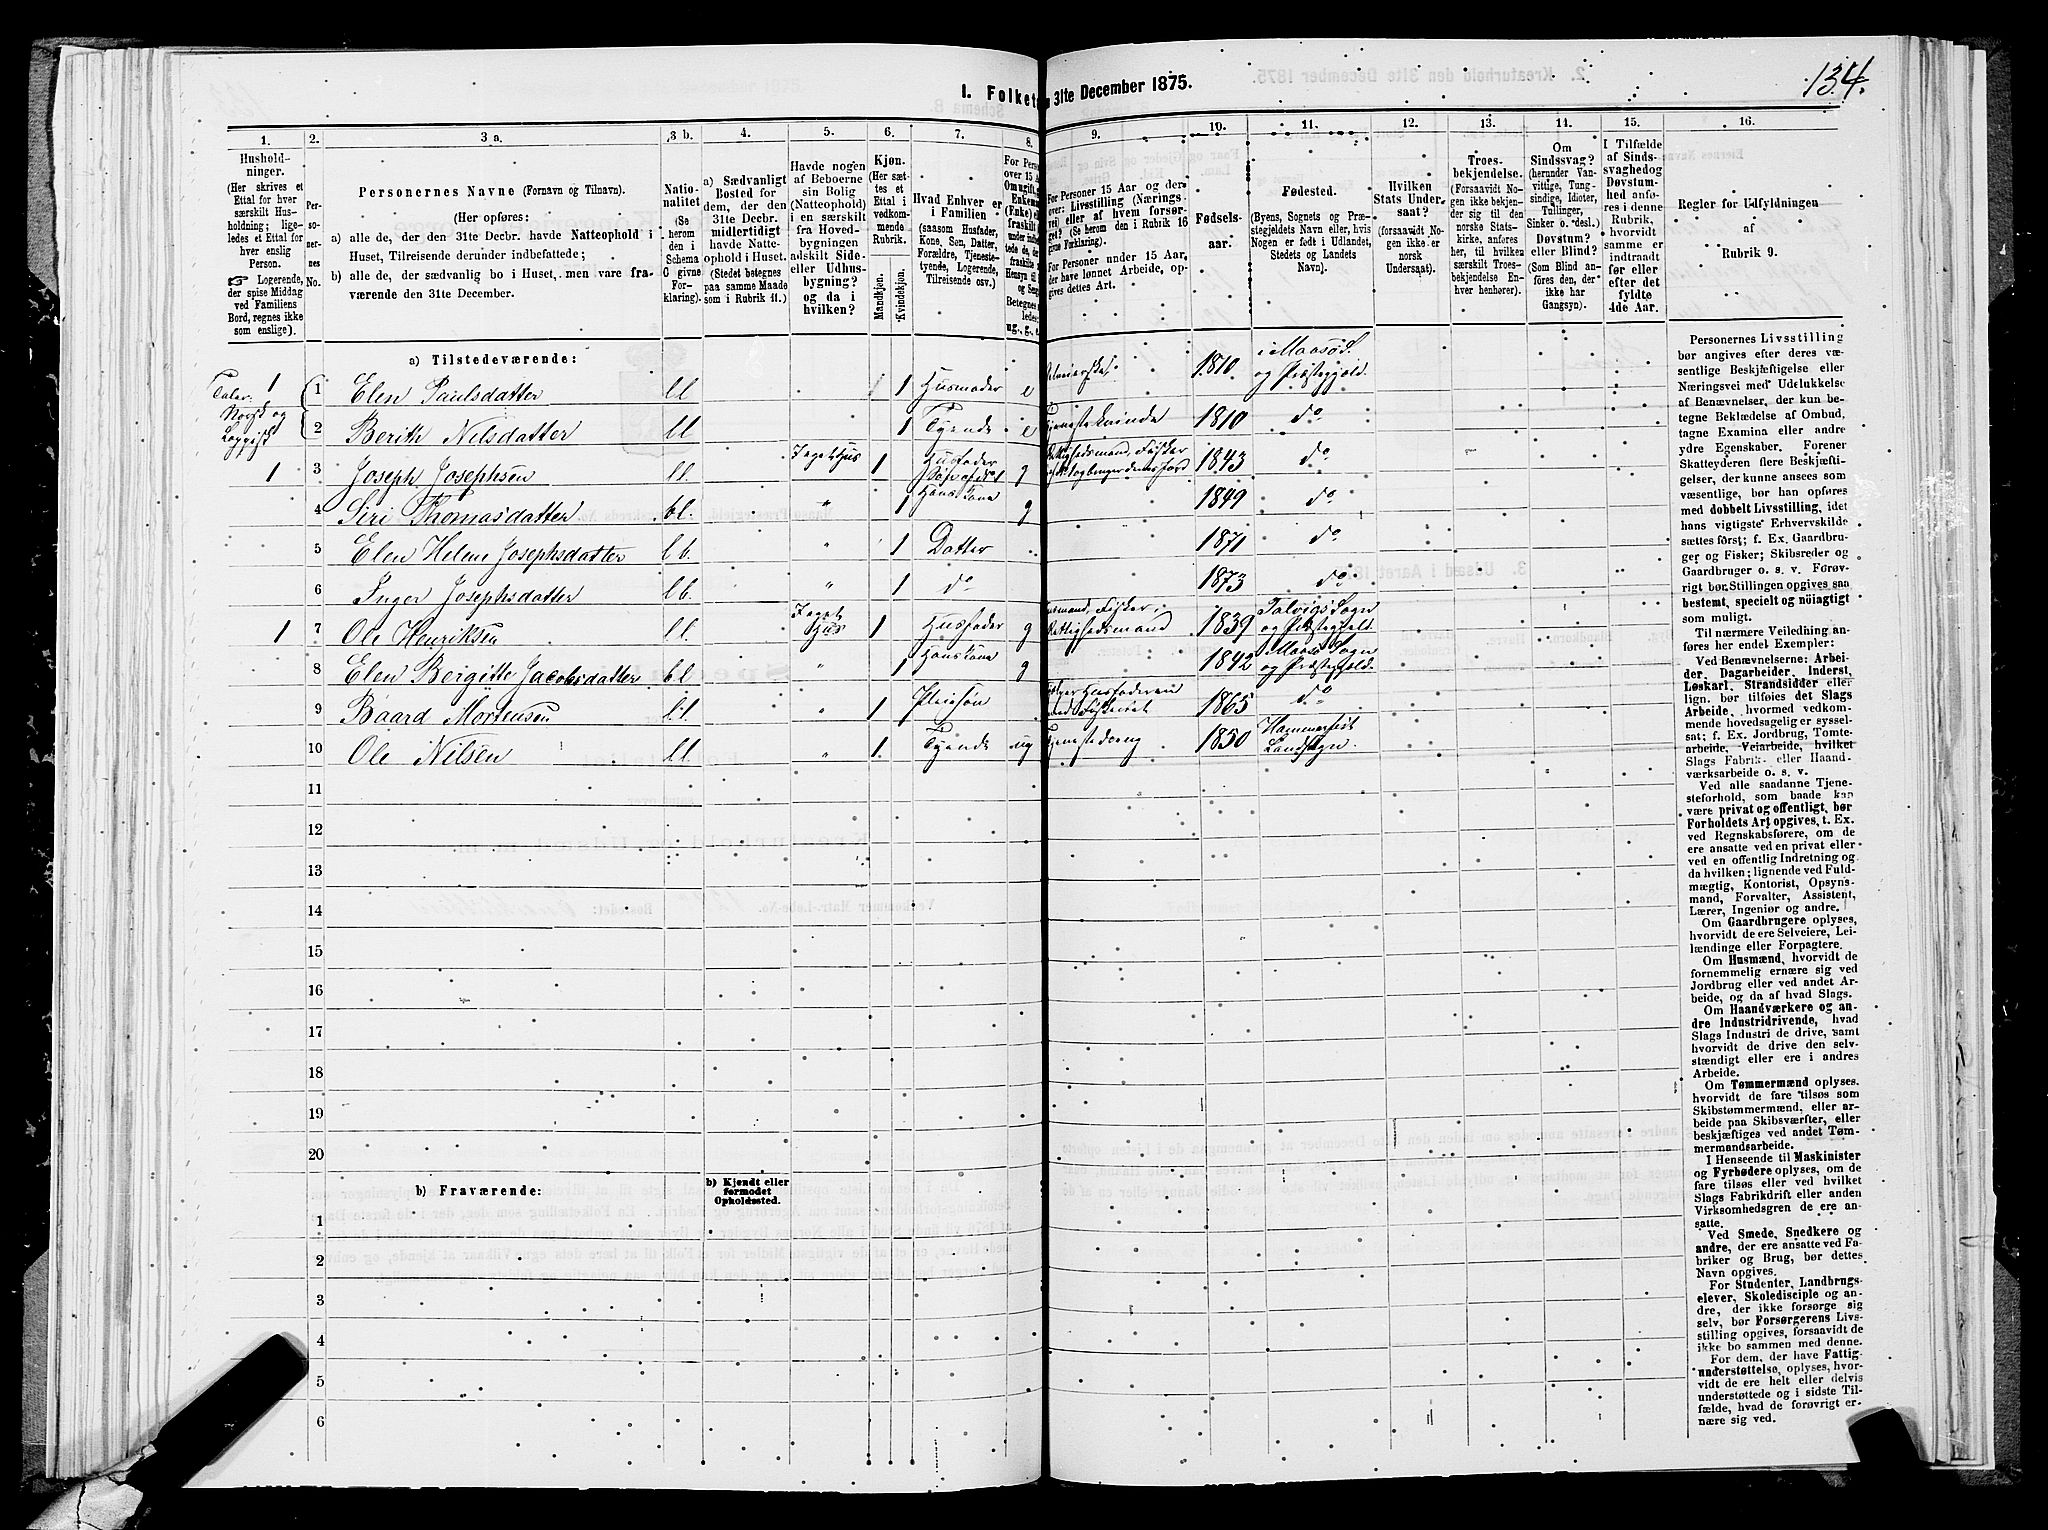 134.
I. Folket
31te December 1875.
1. 2. 3 a. 3 b. 4. 5. 6. 7. 8. 9. 10. 11. 12. 13. 14. 15. 16.
Hushold-
ninger.
(Her skrives et
Ettal for hver
særskilt Hus-
holdning; lige-
ledes et Ettal for
hver enslig
Person.
☞ Logerende,
der spise Middag
ved Familiens
Bord, regnes ikke
som enslige).
Per-
so-
ner-
nes
No.
Personernes Navne (Fornavn og Tilnavn).
(Her opføres:
a) alle de, der den 31te Decbr. havde Natteophold i
Huset, Tilreisende derunder indbefattede;
b) alle de, der sædvanlig bo i Huset, men vare fra-
værende den 31te December.)
Natio-
nalitet
(Se
herom
den i
Schema
C givne
For-
klaring).
a) Sædvanligt
Bosted for
dem, der den
31te Decbr.
midlertidigt
havde Natte-
ophold i Huset.
(Stedet betegnes
paa samme Maade
som i Rubrik 11.)
Havde nogen
af Beboerne
sin Bolig
(Natteophold)
i en særskilt
fra Hoved-
bygningen
adskilt Side-
eller Udhus-
bygning?
og da i
hvilken?
Kjøn.
(Her sæt-
tes et
Ettal i
vedkom-
mende
Rubrik.)
Mandkjøn.
Kvindekjøn.
Hvad Enhver er
i Familien
(saasom Husfader,
Kone, Søn, Datter,
Forældre, Tjeneste-
tyende, Logerende,
Tilreisende osv.)
For Personer 15 Aar og der-
over: Livsstilling (Nærings-
vei) eller af hvem forsør-
get? (Se herom den i Rubrik 16
givne Forklaring).
For Personer under 15 Aar,
der have lønnet Arbeide, op-
gives dettes Art.
Fødsels-
aar.
Fødested.
(Byens, Sognets og Præ-
stegjeldets Navn, eller, hvis
Nogen er født i Udlandet,
Stedets og Landets
Navn).
Hvilken
Stats Under-
saat?
(forsaavidt No-
gen ikke er
norsk
Undersaat).
Troes-
bekjendelse.
(Forsaavidt No-
gen ikke bekjen-
der sig til den
norske Stats-
kirke, anføres
her, til hvilken
særskilt Troes-
bekjendelse En-
hver henhører).
Om
Sindssvag?
(herunder Van-
vittige, Tung-
sindige, Idioter,
Tullinger,
Sinker o. desl.)
Døvstum?
eller Blind?
(Som Blind an-
føres den, der
ikke har
Gangsyn).
I Tilfælde
af Sinds-
svaghed og
Døvstum-
hed anfø-
res i denne
Rubrik,
hvorvidt
samme er
indtraadt
før eller
efter det
fyldte
4de Aar.
Regler for Udfyldningen
af
Rubrik 9.
a) Tilstedeværende:
1 1 Elen Paulsdatter ll 1 Husmoder e 1810 i Maasø S. og Præstegjeld.
Taler
Norsk og
Lappisk
2 Berith Nilsdatter ll 1 Tyende e Tjenestekvinde 1810 do
1 3 Joseph Josephsen ll. Jagethus 1 Husfader g Rettighedsmand, Fisker 1843 do
4 Siri Thomasdatter bl. " 1 Hans Kone g 1849 do
5 Elen Helene Josephsdatter lb. " 1 Datter 1871 do
6 Inger Josephsdatter lb. " 1 do 1873 do
1 7 Ole Henriksen ll. Jaget Hus 1 Husfader g Fisker, Rettighedsmand 1839 Talvigs Sogn og Præstegjeld.
8 Elen Bergitte Jacobsdatter bl " 1 Hans Kone g 1842 Maasø Sogn og Præstegjeld.
9 Baard Mortensen ll. " 1 Pleiesøn Husfaderen med Fiskeriet 1865 do
10 Ole Nilsen ll. " 1. Tyende ug Tjenestedreng 1850 Hammerfest Landsogn.
11
12
13
14
15
16
17
18
19
20
b) Fraværende:
b) Kjendt eller
formodet
Opholdssted.
1
2
3
4
5
6
Personernes Livsstilling
bør angives efter deres væ-
sentlige Beskjæftigelse eller
Næringsvei med Udelukkelse
af Benævnelser, der kun be-
tegne Beklædelse af Ombud,
tagne Examina eller andre
ydre Egenskaber. Forener
Skatteyderen flere Beskjæfti-
gelser, der kunne ansees som
væsentlige, bør han opføres
med dobbelt Livsstilling, idet
hans vigtigste Erhvervskilde
sættes først; f. Ex. Gaardbru-
ger og Fisker; Skibsreder og
Gaardbruger o. s. v. Forøv-
rigt bør Stillingen opgives saa
bestemt, specielt og nøiagtigt
som muligt.
Til nærmere Veiledning an-
føres her endel Exempler:
Ved Benævnelserne: Arbei-
der, Dagarbeider, Inderst,
Løskarl, Strandsidder eller
lign. bør tilføies det Slags
Arbeide, hvormed vedkom-
mende hovedsagelig er syssel-
sat; f. Ex. Jordbrug, Tomte-
arbeide, Veiarbeide, hvilket
Slags Fabrik- eller Haand-
værksarbeide o. s. v.
Ved alle saadanne Tjene-
steforhold, som baade kan
være privat og offentligt, bør
Forholdets Art opgives, t. Ex.
ved Regnskabsførere, om de
ere ansatte ved en privat eller
ved en offentlig Indretning og
da hvilken; lignende ved Fuld-
mægtig, Kontorist, Opsyns-
mand, Forvalter, Assistent,
Lærer, Ingeniør og andre.
Om Gaardbrugere oplyses,
hvorvidt de ere Selveiere, Lei-
lændinge eller Forpagtere.
Om Husmænd, hvorvidt de
fornemmelig ernære sig ved
Jordbrug eller ved andet Ar-
beide, og da af hvad Slags.
Om Haandværkere og an-
dre Industridrivende, hvad
Slags Industri de drive, samt
hvorvidt de drive den selv-
stændigt eller ere i andres
Arbeide.
Om Tømmermænd oplyses,
hvorvidt de fare tilsøs som
Skibstømmermænd, eller ar-
beide paa Skibsværfter, eller
beskjæftiges ved andet Tøm-
mermandsarbeide.
I Henseende til Maskinister
og Fyrbødere oplyses, om de
fare tilsøs eller ved hvilket
Slags Fabrikdrift eller anden
Virksomhedsgren de ere an-
satte.
Ved Smede, Snedkere og
andre, der ere ansatte ved Fa-
briker og Brug, bør dettes
Navn opgives.
For Studenter, Landbrugs-
elever, Skoledisciple og an-
dre, der ikke forsørge sig
selv, bør Forsørgerens Livs-
stilling opgives, forsaavidt de
ikke bo sammen med denne.
For dem, der have Fattig-
understøttelse, oplyses, hvor-
vidt de ere helt eller delvis
understøttede og i sidste Til-
fælde, hvad de forøvrigt er-
nære sig ved.